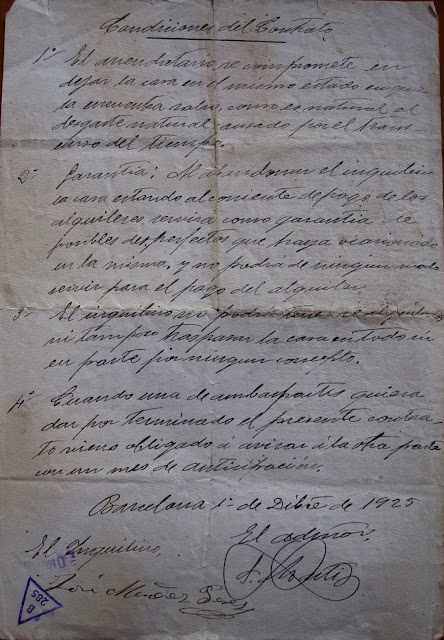 Condiciones del Contrato
1ª El arrendatario se compromete en
dejar la casa en el mismo estado en que
la encuentra salvo, como es natural el
desgaste natural causado por el trans
curso del tiempo.
2ª Garantia: Al abandonar el inquilino
la casa estando al corriente de pago de los
alquileres, servira como garantia de
posibles desperfectos que haya ocasionado
en la misma, y no podrá de ningun modo
servir para el pago del alquiler.
3ª El inquilino no podrá
ni tampoco traspasar la casa en todo ni
en parte por ningun concepto.
4ª Cuando una de ambas partes quiera
dar por terminado el presente contra-
to viene obligado á avisar á la otra parte
con un mes de anticipación.
Barcelona 1º de Dibre de 1925
El Inquilino,
El admor,
José
B
265